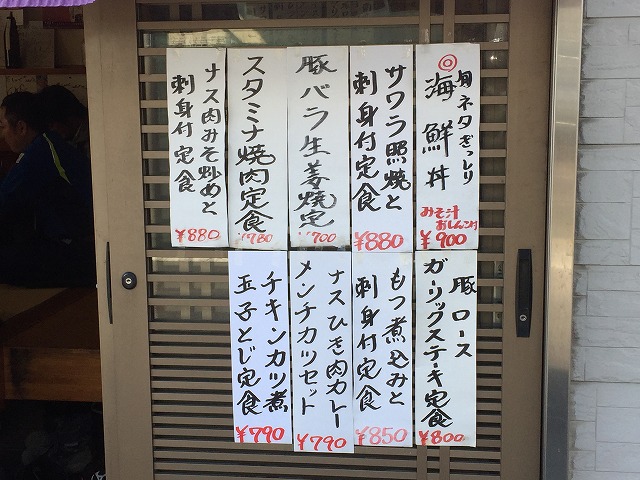 ◎旬ネタぎっしり
海鮮丼
みそ汁
おしんこ付
¥900
サワラ照焼と
刺身付定食
¥880
豚バラ生姜焼定
¥700
スタミナ焼肉定食
¥780
ナス肉みそ炒めと
刺身付定食
¥880
豚ロース
ガーリックステーキ定食
¥800
もつ煮込みと
刺身付定食
¥850
ナスひき肉カレー
メンチカツセット
¥790
チキンカツ煮
玉子とじ定食
¥790